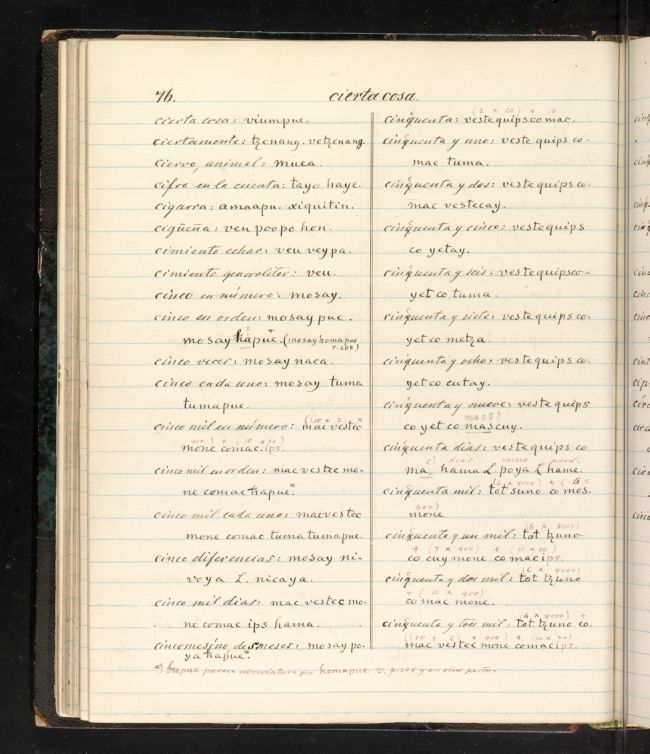 76.
cierta cosa.
cierta cosa: viumpue.
ciertamente: tzenang. vetzenang.
ciervo, animal: muca.
cifra en la cuenta: tayo haye.
cigarra: amaapu. xiquitin.
cigüeña: ven poopo hon.
cimiento echar: veu veypa.
cimiento generaliter: veu.
cinco en número: mosay.
cinco en orden: mosay pue.
mosay hapue.* (mosay homapue
P. 208)
cinco veces: mosay naca.
cinco cada uno: mosay tuma
tumapue.
((10 + 2) ×
cinco mil en número: mac vestec
400) + (10 × 20)
mone comac.ips.
cinco mil en orden: mac vestec mo-
ne comac hapue*
cinco mil cada uno: mac vestec
mone comac tuma tumapue.
cinco diferencias: mosay ni-
voya L. nicaya.
cinco mil dias: mac vestec mo-
ne comac ips hama.
cincomesino, de 5 meses: mosay po-
ya hapue*.
*) hapue parece abreviatura por homapue. v. p. 208 y en otras partes.
(2 × 20) + 10
cinquenta: vestequips comac.
cinquenta y uno: veste quips co-
mac tuma.
cinquenta y dos: veste quips co-
mac vestecay.
cinquenta y cinco: veste quips
co yetay.
cinquenta y seis: veste quips co-
yet co tuma.
cinquenta y siete: veste quips co-
yet co metza.
cinquenta y ocho: veste quips co-
yet co cutay.
cinquenta y nueve: veste quips
macs?
co yet co mascuy.
cinquenta dias: veste quips co
c? dias meses años.
ma hama L poya L hame.
(6 × 8000) + (5 ×
cinquenta mil: tot suno co mos-
400)
mone
(6 × 8000)
cinquenta y un mil: tot tzuno
+ (7 × 400) + (10 × 20)
co cuy mone co mac ips.
(6 × 8000)
cinquenta y dos mil: tot tzuno
+ (10 × 400)
co mac mone.
(6 × 8000) +
cinquenta y tres mil: tot tzuno co.
((10 + 2) × 400) + (10 × 20)
mac vestec mone comac ips.